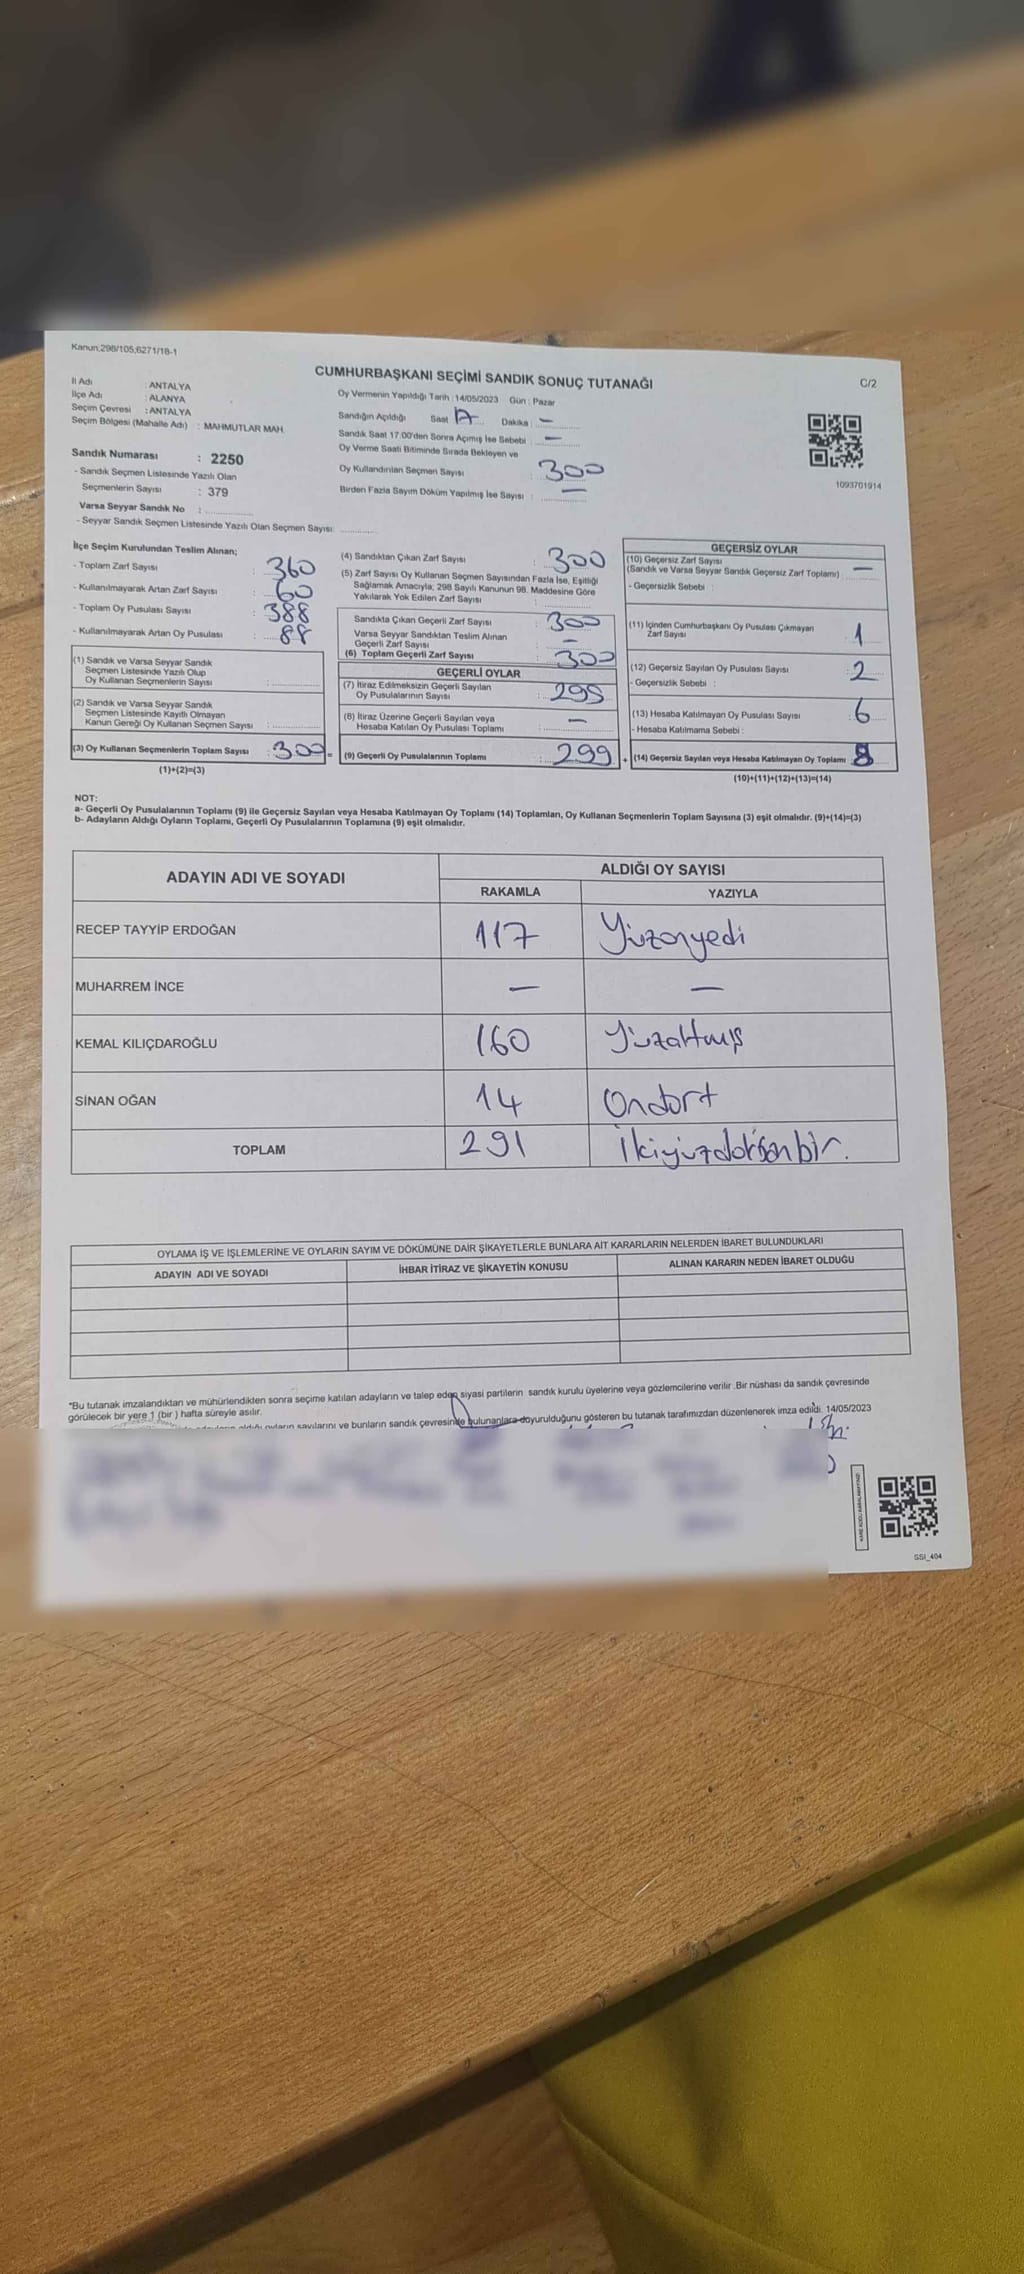 Kanun;298/105,6271/18-1
CUMHURBAŞKANI SEÇİMİ SANDIK SONUÇ TUTANAĞI
C/2
İl Adı : ANTALYA
İlçe Adı : ALANYA
Seçim Çevresi : ANTALYA
Seçim Bölgesi (Mahalle Adı) : MAHMUTLAR MAH.
Sandık Numarası : 2250
- Sandık Seçmen Listesinde Yazılı Olan
Seçmenlerin Sayısı : 379
Varsa Seyyar Sandık No :
- Seyyar Sandık Seçmen Listesinde Yazılı Olan Seçmen Sayısı:
Oy Vermenin Yapıldığı Tarih :14/05/2023 Gün : Pazar
Sandığın Açıldığı Saat Dakika : —
Sandık Saat 17:00'den Sonra Açımış İse Sebebi : —
Oy Verme Saati Bitiminde Sırada Bekleyen ve
Oy Kullandırılan Seçmen Sayısı : 300
Birden Fazla Sayım Döküm Yapılmış İse Sayısı : —
1093701914
İlçe Seçim Kurulundan Teslim Alınan;
- Toplam Zarf Sayısı : 360
- Kullanılmayarak Artan Zarf Sayısı : 60
- Toplam Oy Pusulası Sayısı : 388
- Kullanılmayarak Artan Oy Pusulası : 88
(1) Sandık ve Varsa Seyyar Sandık
Seçmen Listesinde Yazılı Olup
Oy Kullanan Seçmenlerin Sayısı :
(2) Sandık ve Varsa Seyyar Sandık
Seçmen Listesinde Kayıtlı Olmayan
Kanun Gereği Oy Kullanan Seçmen Sayısı :
(3) Oy Kullanan Seçmenlerin Toplam Sayısı : 300 =
(1)+(2)=(3)
(4) Sandıktan Çıkan Zarf Sayısı : 300
(5) Zarf Sayısı Oy Kullanan Seçmen Sayısından Fazla İse, Eşitliği
Sağlamak Amacıyla; 298 Sayılı Kanunun 98. Maddesine Göre
Yakılarak Yok Edilen Zarf Sayısı :
Sandıkta Çıkan Geçerli Zarf Sayısı : 300
Varsa Seyyar Sandıktan Teslim Alınan
Geçerli Zarf Sayısı : —
(6) Toplam Geçerli Zarf Sayısı : 300
GEÇERLİ OYLAR
(7) İtiraz Edilmeksizin Geçerli Sayılan
Oy Pusulalarının Sayısı : 295
(8) İtiraz Üzerine Geçerli Sayılan veya
Hesaba Katılan Oy Pusulası Toplamı : —
(9) Geçerli Oy Pusulalarının Toplamı : 299 +
GEÇERSİZ OYLAR
(10) Geçersiz Zarf Sayısı
(Sandık ve Varsa Seyyar Sandık Geçersiz Zarf Toplamı) : —
- Geçersizlik Sebebi :
(11) İçinden Cumhurbaşkanı Oy Pusulası Çıkmayan
Zarf Sayısı : 1
(12) Geçersiz Sayılan Oy Pusulası Sayısı : 2
- Geçersizlik Sebebi :
(13) Hesaba Katılmayan Oy Pusulası Sayısı : 6
- Hesaba Katılmama Sebebi :
(14) Geçersiz Sayılan veya Hesaba Katılmayan Oy Toplamı : 8
(10)+(11)+(12)+(13)=(14)
NOT:
a- Geçerli Oy Pusulalarının Toplamı (9) ile Geçersiz Sayılan veya Hesaba Katılmayan Oy Toplamı (14) Toplamları, Oy Kullanan Seçmenlerin Toplam Sayısına (3) eşit olmalıdır. (9)+(14)=(3)
b- Adayların Aldığı Oyların Toplamı, Geçerli Oy Pusulalarının Toplamına (9) eşit olmalıdır.
ADAYIN ADI VE SOYADI
ALDIĞI OY SAYISI
RAKAMLA YAZIYLA
RECEP TAYYİP ERDOĞAN 117 Yüzonyedi
MUHARREM İNCE — —
KEMAL KILIÇDAROĞLU 160 Yüzaltmış
SİNAN OĞAN 14 Ondört
TOPLAM 291 İkiyüzdoksanbir.
OYLAMA İŞ VE İŞLEMLERİNE VE OYLARIN SAYIM VE DÖKÜMÜNE DAİR ŞİKAYETLERLE BUNLARA AİT KARARLARIN NELERDEN İBARET BULUNDUKLARI
ADAYIN ADI VE SOYADI İHBAR İTİRAZ VE ŞİKAYETİN KONUSU ALINAN KARARIN NEDEN İBARET OLDUĞU
*Bu tutanak imzalandıktan ve mühürlendikten sonra seçime katılan adayların ve talep eden siyasi partilerin sandık kurulu üyelerine veya gözlemcilerine verilir .Bir nüshası da sandık çevresinde
görülecek bir yere 1 (bir ) hafta süreyle asılır.
oyların sayılarını ve bunların sandık çevresinde bulunanlara duyurulduğunu gösteren bu tutanak tarafımızdan düzenlenerek imza edildi. 14/05/2023
SSI_404